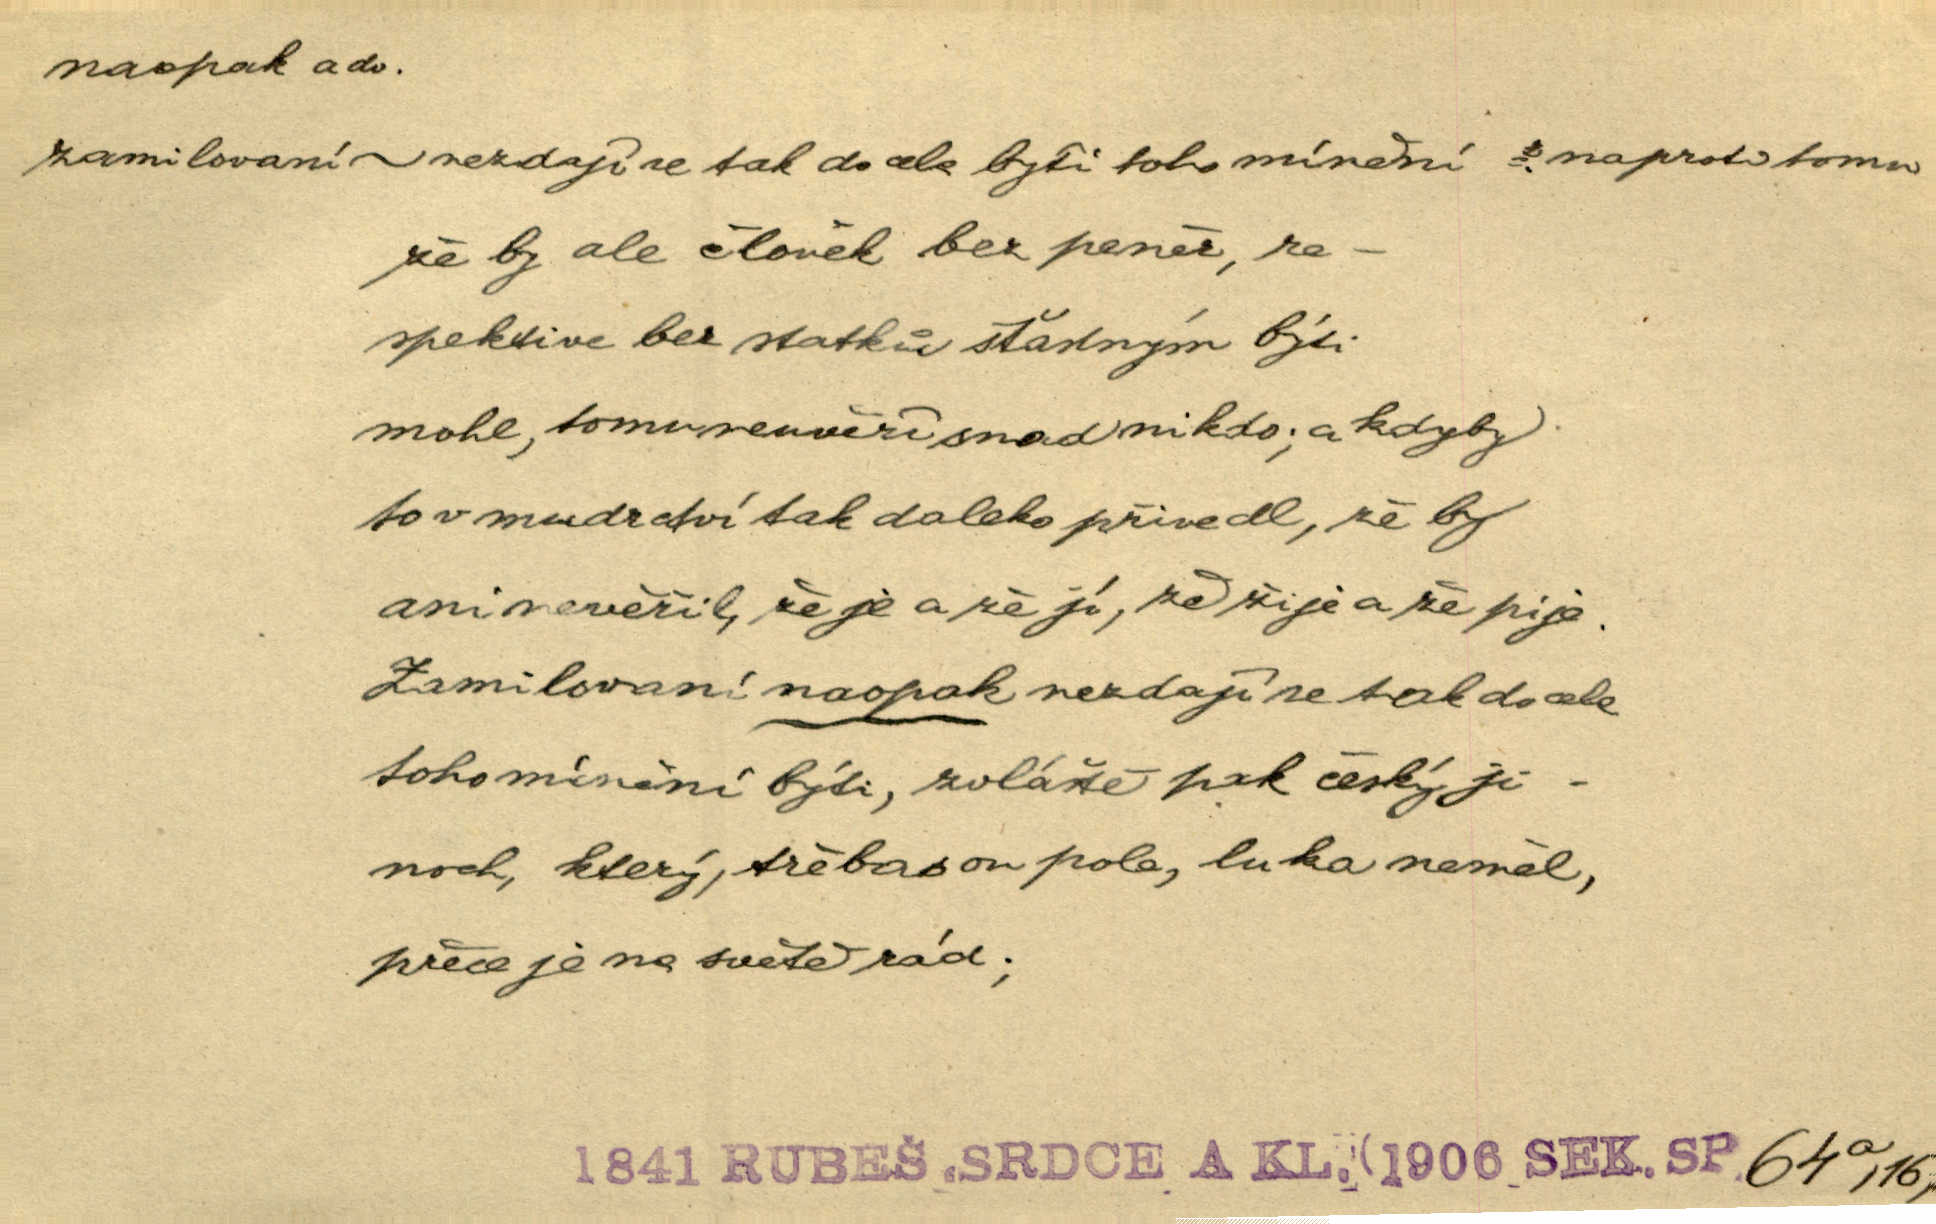 naopak adv.
zamilovaní ~ nezdají se tak docela býti toho mínění =: naproti tomu
že by ale člověk bez peněz, re-
spektive bez statků šťastným býti
mohl, tomu neuvěří snad nikdo; a kdyby
to v mudrctví tak daleko přivedl, že by
ani nevěřil, že je a že jí, že žije a že pije.
Zamilovaní naopak nezdají se tak docela
toho mínění býti, zvláště pak český ji-
noch, který, třebas on pole, luka neměl,
přece je na světě rád;
1841 RUBEŠ SRDCE A KL. (1906 SEK. SP. 64a, 16,